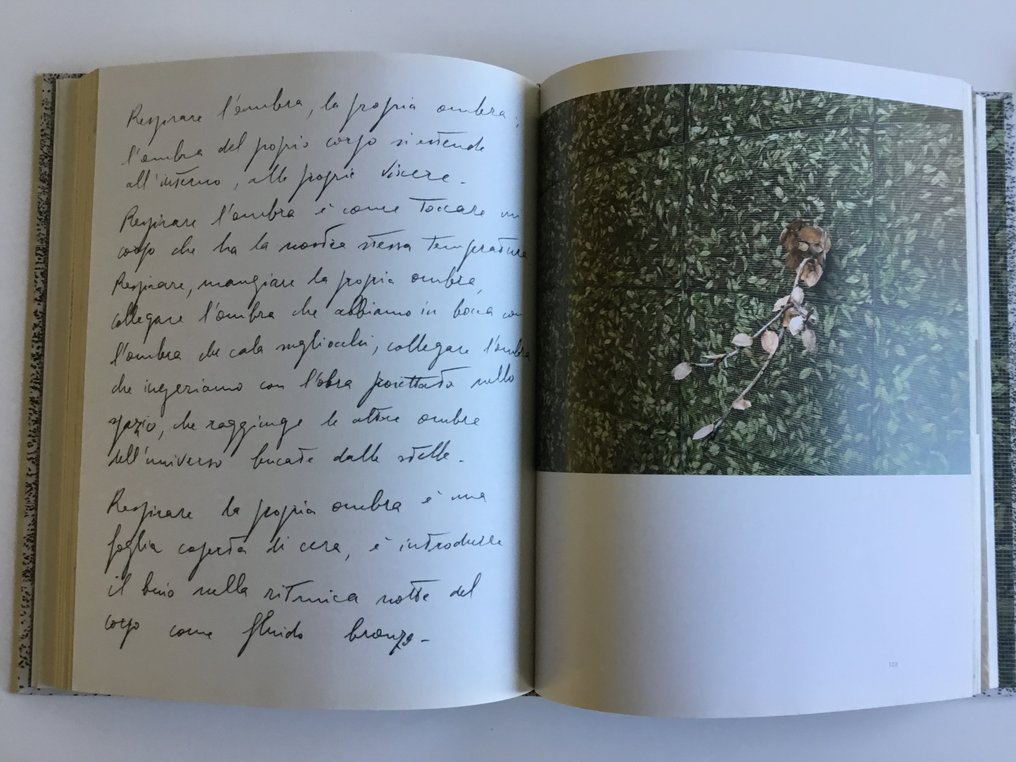 Respirare l'ombra, la propria ombra,
l'ombra del proprio corpo si estende
all'interno, alle proprie viscere.
Respirare l'ombra è come toccare un
corpo che ha la nostra stessa temperatura
Respirare, mangiare la propria ombra,
collegare l'ombra che abbiamo in bocca con
l'ombra che cala sugli occhi, collegare l'ombra
che ingeriamo con l'obra proiettata nello
spazio, che raggiunge le altre ombre
dell'universo bucate dalle stelle.
Respirare la propria ombra è una
foglia coperta di cera, è introdurre
il buio nella ritmica notte del
corpo come fluido bronzo.